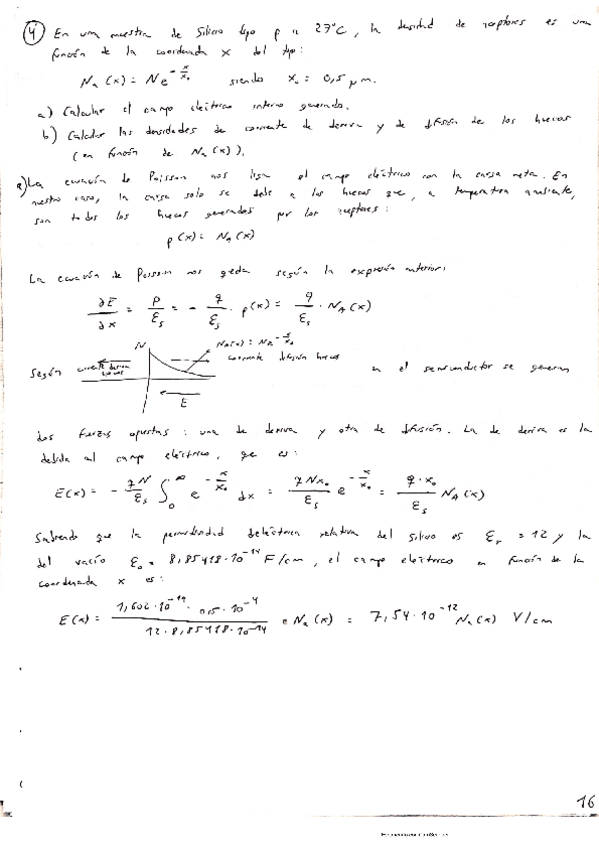 4) En una muestra de silicio tipo p a 27°C, la densidad de aceptores es una
función de la coordenada x del tipo:
Na(x) = N e^(-x/x₀) siendo x₀ = 0,5 μm.
a) Calcular el campo eléctrico interno generado.
b) Calcular las densidades de corriente de deriva y de difusión de los huecos
(en función de Na(x)).
a) La ecuación de Poisson nos liga el campo eléctrico con la carga neta. En
nuestro caso, la carga solo se debe a los huecos que, a temperatura ambiente,
son todos los huecos generados por los aceptores:
p(x) = NA(x)
La ecuación de Poisson nos queda según la expresión anterior:
∂E/∂x = ρ/εs = - q/εs · p(x) = q/εs · NA(x)
N
Na(x) = N e^(-x/x₀)
Según corriente deriva huecos corriente difusión huecos en el semiconductor se generan
E
dos fuerzas opuestas: una de deriva y otra de difusión. La de deriva es la
debida al campo eléctrico, que es:
E(x) = - qN/εs ∫₀^∞ e^(-x/x₀) dx = qNx₀/εs e^(-x/x₀) = q·x₀/εs NA(x)
Sabiendo que la permitividad dieléctrica relativa del silicio es εr = 12 y la
del vacío ε₀ = 8,85418·10⁻¹⁴ F/cm, el campo eléctrico en función de la
coordenada x es:
E(x) = 1,602·10⁻¹⁹ · 0,5·10⁻⁴ / 12·8,85418·10⁻¹⁴ Na(x) = 7,54·10⁻¹² Na(x) V/cm
16